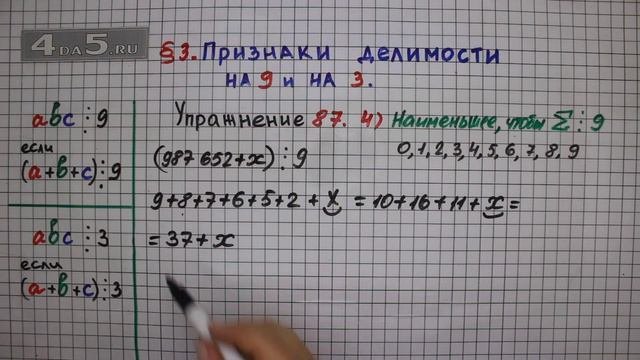 4DA5.RU
§3. Признаки делимости
на 9 и на 3.
abc ⋮ 9
если
(a+b+c) ⋮ 9
abc ⋮ 3
если
(a+b+c) ⋮ 3
Упражнение 87. 4) Наименьшее, чтобы Σ ⋮ 9
(987 652+x) ⋮ 9
0, 1, 2, 3, 4, 5, 6, 7, 8, 9
9+8+7+6+5+2+x = 10+16+11+x =
= 37+x